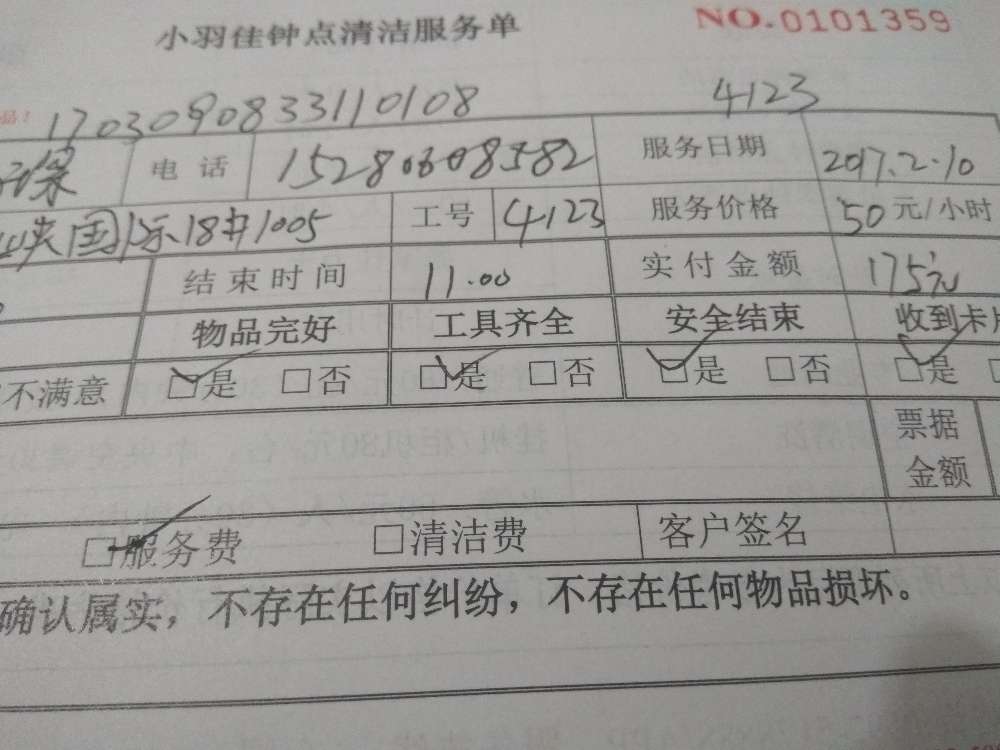 小羽佳钟点清洁服务单 NO.0101359
品： 1703090833110108 4123
电话 15280608582 服务日期 2017.2.10
国际18#1005 工号 4123 服务价格 50元/小时
结束时间 11.00 实付金额 175元
物品完好 工具齐全 安全结束 收到卡片
不满意 □是 □否 □是 □否 □是 □否 □是
票据金额
□服务费 □清洁费 客户签名
确认属实，不存在任何纠纷，不存在任何物品损坏。